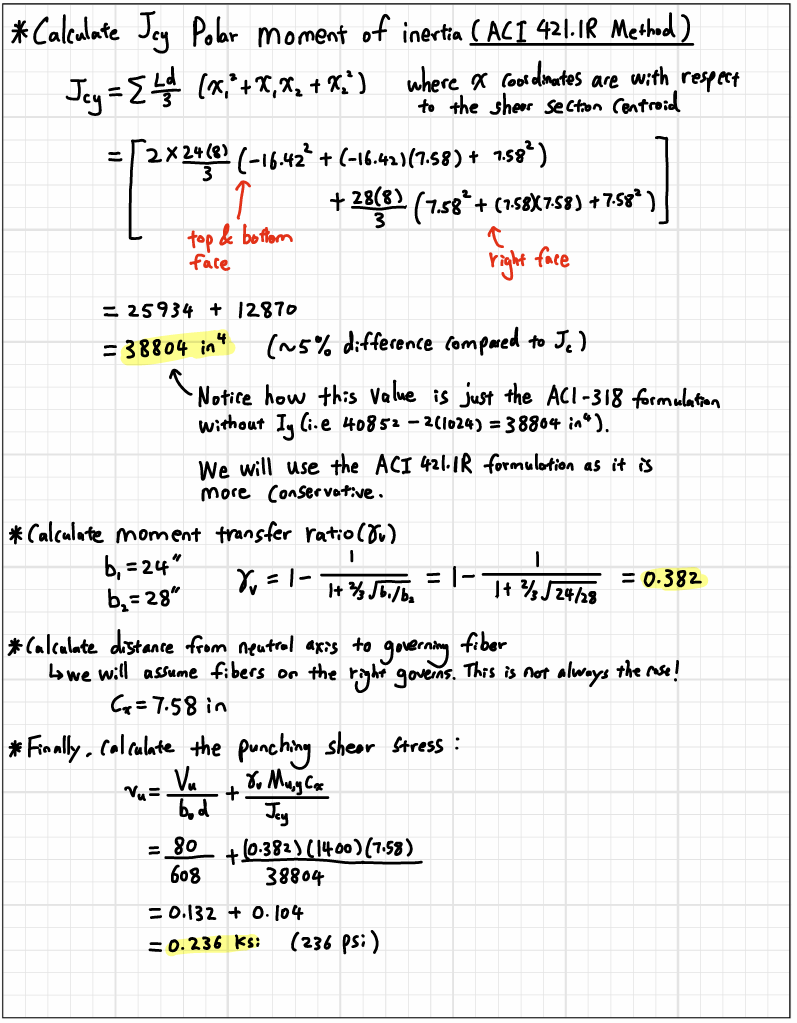 *Calculate Jcy Polar moment of inertia (ACI 421.1R Method)
Jcy = Σ Ld/3 (x₁² + x₁x₂ + x₂²) where x coordinates are with respect
to the shear section centroid
= [2 × 24(8)/3 (-16.42² + (-16.42)(7.58) + 7.58²)
+ 28(8)/3 (7.58² + (7.58)(7.58) + 7.58²)]
top & bottom
face
right face
= 25934 + 12870
= 38804 in⁴ (~5% difference compared to Jc)
Notice how this value is just the ACI-318 formulation
without Iy (i.e 40852 - 2(1024) = 38804 in⁴).
We will use the ACI 421.1R formulation as it is
more conservative.
*Calculate moment transfer ratio (γv)
b₁ = 24"
b₂ = 28"
γv = 1 - 1/(1 + 2/3 √b₁/b₂) = 1 - 1/(1 + 2/3 √24/28) = 0.382
*Calculate distance from neutral axis to governing fiber
↳ we will assume fibers on the right governs. This is not always the case!
Cx = 7.58 in
*Finally, calculate the punching shear stress:
vu = Vu/(b₀d) + γv Mu,y Cx/Jcy
= 80/608 + (0.382)(1400)(7.58)/38804
= 0.132 + 0.104
= 0.236 ksi (236 psi)